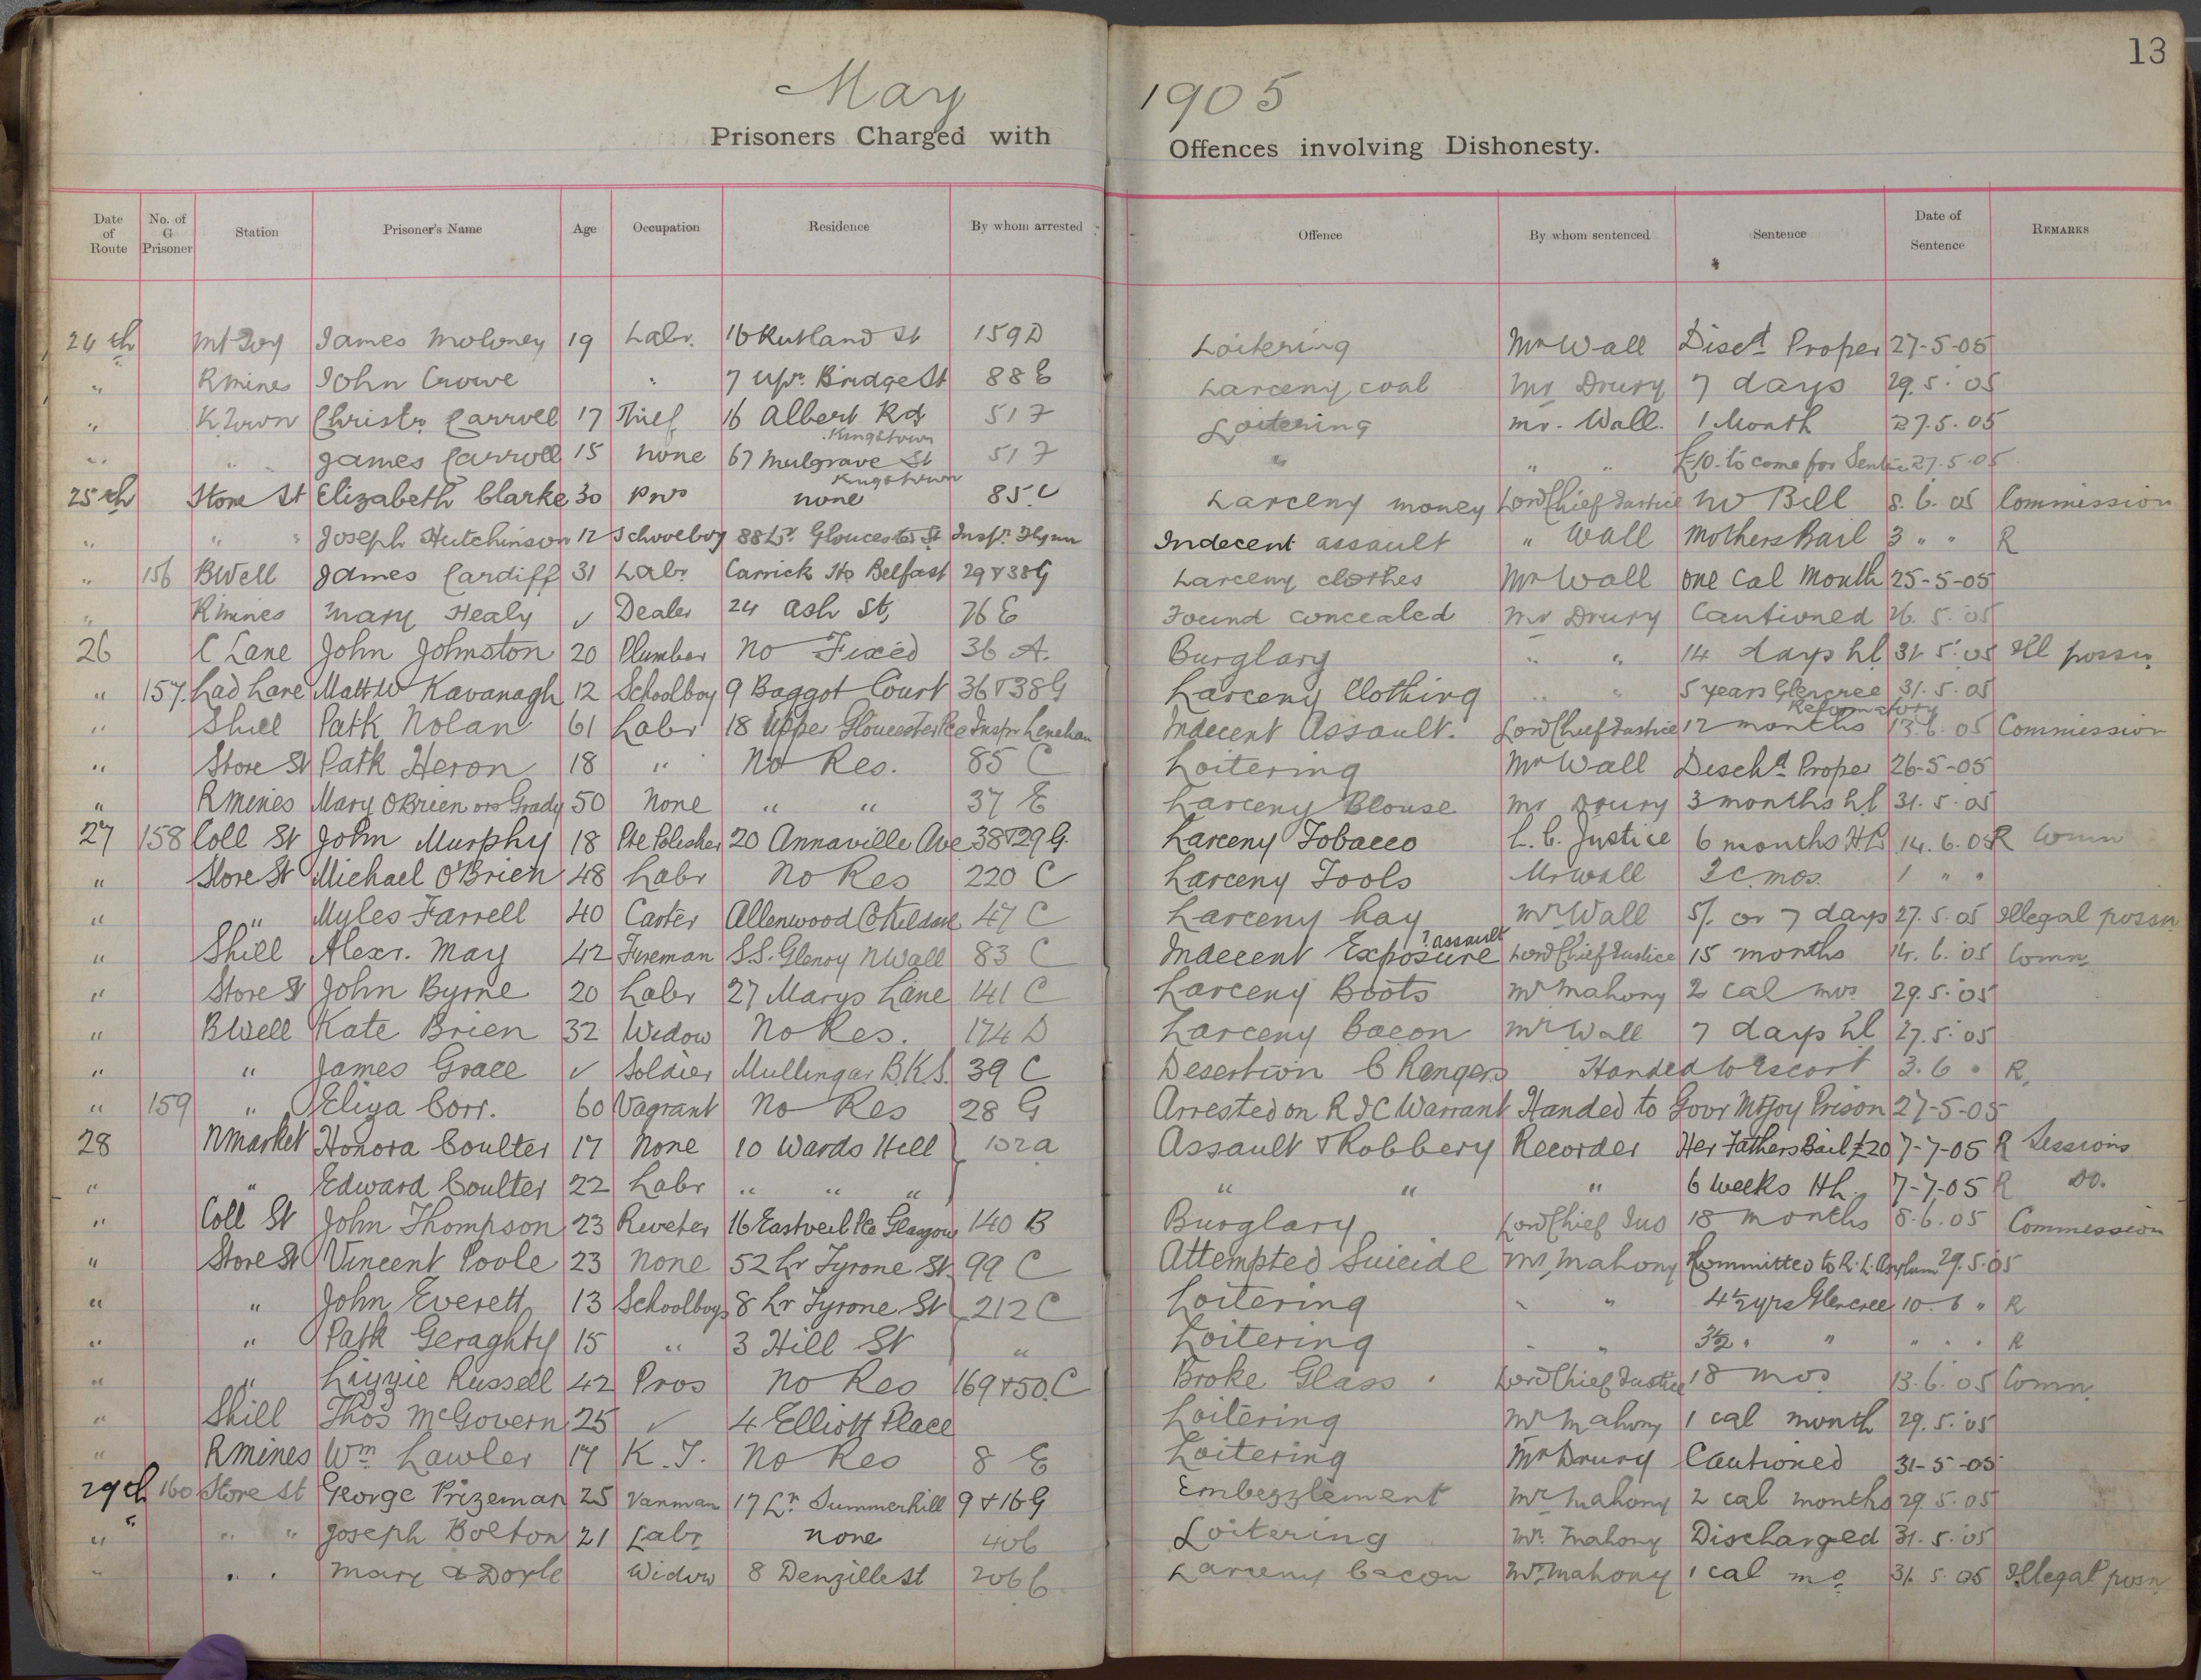 13
May 1905
Prisoners Charged with Offences involving Dishonesty.
Date of Route No. of G Prisoner Station Prisoner's Name Age Occupation Residence By whom arrested Offence By whom sentenced Sentence Date of Sentence REMARKS
24th Mt Joy James Moloney 19 Labr. 16 Rutland St 159 D Loitering Mr Wall Discd Proper 27-5-05
" R mines John Crowe " 7 Upr. Bridge St 88 E Larceny coal Mr Drury 7 days 29.5.05
" K. Town Christr Carroll 17 Thief 16 Albert Rd Kingstown 51 F Loitering Mr. Wall. 1 Month 27.5.05
" " " James Carroll 15 none 67 Mulgrave St Kingstown 51 F " " " £10. to come for Sentce 27.5.05
25th Store St Elizabeth Clarke 30 Pros none 85 C Larceny money Lord Chief Justice No Bill 8.6.05 Commission
" " " Joseph Hutchinson 12 Schoolboy 88 Lr. Gloucester St Inspr. Flynn Indecent assault " Wall Mothers Bail 3 " " R
" 156 BWell James Cardiff 31 Labr Carrick Ho Belfast 29 & 38 G Larceny clothes Mr Wall one Cal Month 25-5-05
" R mines Mary Healy ✓ Dealer 24 Ash St, 76 E Found concealed Mr Drury Cautioned 26.5.05
26 C Lane John Johnston 20 Plumber No Fixed 36 A. Burglary " " 14 days hl 31.5.05 Ill possn
" 157. Lad Lane Mattw Kavanagh 12 Schoolboy 9 Baggot Court 36 & 38 G Larceny Clothing " " 5 years Glencree Reformatory 31.5.05
" Shill Patk Nolan 61 Labr 18 Upper Gloucester Pce Inspr Lenehan Indecent Assault. Lord Chief Justice 12 months 13.6.05 Commission
" Store St Patk Heron 18 " No Res. 85 C Loitering Mr Wall Dischd Proper 26-5-05
" R mines Mary OBrien ors Grady 50 None " " 37 E Larceny Blouse Mr Drury 3 months hl 31.5.05
27 158 Coll St John Murphy 18 Fte Polisher 20 Annaville Ave 38 & 29 G. Larceny Tobacco L. C. Justice 6 months H L 14.6.05 R Comn
" Store St Michael O'Brien 48 Labr No Res 220 C Larceny Tools Mr Wall 2 c. mos. 1 " "
" " Myles Farrell 40 Carter Allenwood Co Kildare 47 C Larceny hay Mr Wall 5/. or 7 days 27.5.05 Illegal possn
" Shill Alexr. May 42 Fireman S.S. Glenoy N Wall 83 C Indecent Exposure ? assault Lord Chief Justice 15 months 14.6.05 Comn
" Store St John Byrne 20 Labr 27 Marys Lane 141 C Larceny Boots Mr Mahony 2 cal mos 29.5.05
" BWell Kate Brien 32 Widow No Res. 174 D Larceny Bacon Mr Wall 7 days hl 27.5.05
" " James Grace ✓ Soldier Mullingar B.K.S. 39 C Desertion C Rangers Handed to Escort 3.6 " R.
" 159 " Eliza Corr. 60 Vagrant No Res 28 G Arrested on R I C Warrant Handed to Govr Mtjoy Prison 27-5-05
28 Nmarket Honora Coulter 17 None 10 Wards Hill 152 a Assault & Robbery Recorder Her Fathers Bail £20 7-7-05 R Sessions
" " Edward Coulter 22 Labr " " " " " " 6 weeks Hh. 7-7-05 R Do.
" Coll St John Thompson 23 Riveter 16 Pce Glasgow 140 B Burglary Lord Chief Jus 18 months 8.6.05 Commission
" Store St Vincent Poole 23 None 52 Lr Tyrone St. 99 C Attempted Suicide Mr Mahony Committed to R. L. Asylum 29.5.05
" " John Everett 13 Schoolboys 8 Lr Tyrone St 212 C Loitering " " 4½ yrs Glencree 10.6 " R
" " Patk Geraghty 15 " 3 Hill St " Loitering " " 3½ " " " " " R
" " Lizzie Russell 42 Pros No Res 169 & 50. C Broke Glass. Lord Chief Justice 18 mos 13.6.05 Comn.
" Shill Thos McGovern 25 ✓ 4 Elliott Place Loitering Mr Mahony 1 cal month 29.5.05
" R mines Wm Lawler 17 K. T. No Res 8 E Loitering Mr Drury Cautioned 31-5-05
29th 160 Store St George Prizeman 25 Vanman 17 Lr Summerhill 9 & 16 G Embezzlement Mr Mahony 2 cal months 29.5.05
" " " Joseph Bolton 21 Labr none 40b Loitering Mr. Mahony Discharged 31.5.05
" " " Mary Doyle Widow 8 Denzille St 206 C Larceny bacon Mr. Mahony 1 cal mo 31.5.05 Illegal posn